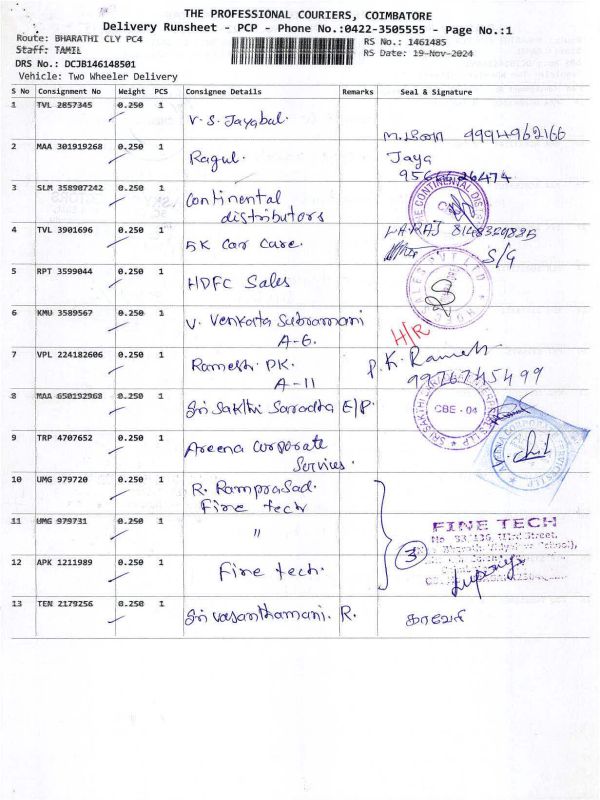 THE PROFESSIONAL COURIERS, COIMBATORE
Delivery Runsheet - PCP - Phone No.:0422-3505555 - Page No.:1
Route: BHARATHI CLY PC4
RS No.: 1461485
Staff: TAMIL
RS Date: 19-Nov-2024
DRS No.: DCJB146148501
Vehicle: Two Wheeler Delivery
S No Consignment No Weight PCS Consignee Details Remarks Seal & Signature
1 TVL 2857345 0.250 1 V.S. Jayabal.
9994962166
2 MAA 301919268 0.250 1 Ragul. Jaya
9566626474
3 SLM 358907242 0.250 1 Continental
distributors
THE CONTINENTAL
4 TVL 3901696 0.250 1 5K Car Care.
S/G
5 RPT 3599044 0.250 1 HDFC Sales
6 KMU 3589567 0.250 1 V. Venkata Subramani
A-6. H/R
7 VPL 224182606 0.250 1 Ramesh. PK. P.K. Ramesh
A-11 9976745499
8 MAA 650192968 0.250 1 Sri Sakthi Saradha E/P.
CBE - 04
9 TRP 4707652 0.250 1 Areena Corporate
Services.
10 UMG 979720 0.250 1 R. Ramprasad.
Fire tech
11 UMG 979731 0.250 1 "
FINE TECH
3
12 APK 1211989 0.250 1 Fire tech.
13 TEN 2179256 0.250 1 Sri Vasanthamani. R. காவேரி